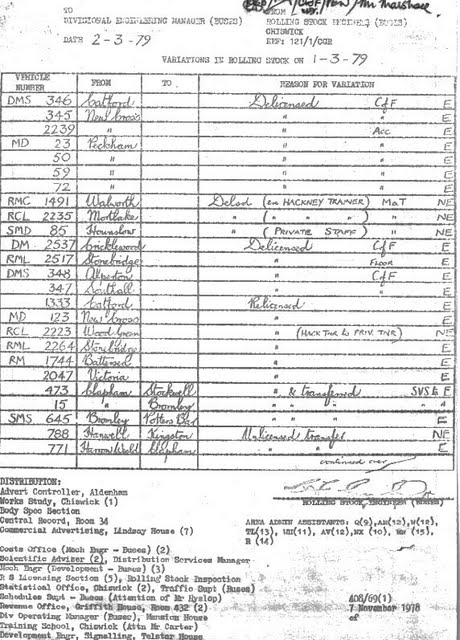 TO
FROM
DIVISIONAL ENGINEERING MANAGER (BUSES)
ROLLING STOCK ENGINEER (BUSES)
CHISWICK
DATE 2-3-79
REF: 121/1/CGR
VARIATIONS IN ROLLING STOCK ON 1-3-79
VEHICLE NUMBER FROM TO REASON FOR VARIATION
DMS 346 Catford Delicensed CofF E
345 New Cross " " E
2239 " " Acc E
MD 23 Peckham " E
50 " " E
59 " " E
72 " " E
RMC 1491 Walworth Delsd (ex HACKNEY TRAINER) MaT NE
RCL 2235 Mortlake " ( " ) " NE
SMD 85 Hounslow " (PRIVATE STAFF) " NE
DM 2537 Cricklewood Delicensed CofF E
RML 2517 Stonebridge " FLOOR E
DMS 348 Alperton " CofF E
347 Southall " " E
1333 Catford Relicensed E
MD 123 New Cross " E
RCL 2223 Wood Green " (HACK TNR to PRIV. TNR) NE
RML 2264 Stonebridge " E
RM 1744 Battersea " E
2047 Victoria " E
473 Clapham Stockwell " & transferred SVS to E
15 " Bromley " " " " "
SMS 645 Bromley Potters Bar " " " E
788 Hanwell Kingston Unlicensed transfer NE
771 Harrow Weald Clapham " " E
continued over
DISTRIBUTION:
ROLLING STOCK ENGINEER (BUSES)
Advert Controller, Aldenham
Works Study, Chiswick (1)
Body Spec Section
Central Record, Room 34
Commercial Advertising, Lindsay House (7)
AREA ADMIN ASSISTANTS: Q(9), AH(12), W(12),
TL(13), UH(11), AV(12), NX (10), HW (15),
R (14)
Costs Office (Mech Engr - Buses) (2)
Scientific Adviser (2), Distribution Services Manager
Mech Engr (Development - Buses) (3)
R S Licensing Section (5), Rolling Stock Inspection
Statistical Office, Chiswick (2), Traffic Supt (Buses)
Schedules Dept - Buses (Attention of Mr Hyslop)
Revenue Office, Griffith House, Room 432 (2)
Div Operating Manager (Buses), Mansion House
Training School, Chiswick (Attn Mr Carter)
Development Engr, Signalling, Telstar House
408/69(1)
7 November 1978